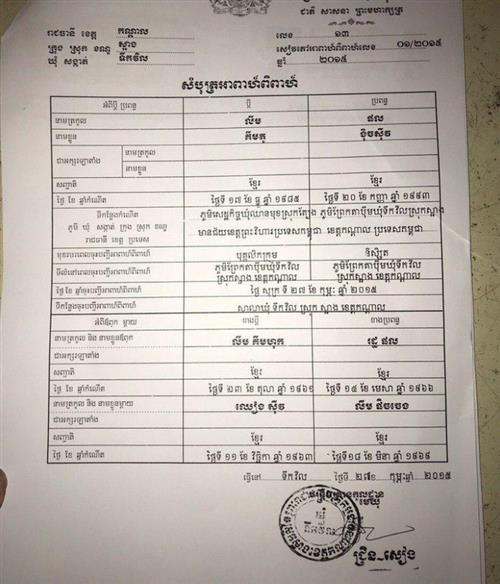 ជាតិ សាសនា ព្រះមហាក្សត្រ
រាជធានី ខេត្ត កណ្តាល
ក្រុង ស្រុក ខណ្ឌ ស្អាង
ឃុំ សង្កាត់ ទឹកវិល
លេខ ១៣
សៀវភៅអាពាហ៍ពិពាហ៍លេខ ០១/២០១៥
ឆ្នាំ ២០១៥
សំបុត្រអាពាហ៍ពិពាហ៍
អំពីប្តី ប្រពន្ធ ប្តី ប្រពន្ធ
នាមត្រកូល លឹម ផល
នាមខ្លួន គឹមភូ ង៉ិបស៊ីវ
ជាអក្សរឡាតាំង នាមត្រកូល
នាមខ្លួន
សញ្ជាតិ ខ្មែរ ខ្មែរ
ថ្ងៃ ខែ ឆ្នាំកំណើត ថ្ងៃទី ១៧ ខែ ធ្នូ ឆ្នាំ ១៩៨៥ ថ្ងៃទី ២០ ខែ កញ្ញា ឆ្នាំ ១៩៩៣
ទីកន្លែងកំណើត ភូមិសេដ្ឋកិច្ចឃុំឈានមុខស្រុកត្បែង ភូមិព្រែកតាប៉ឹមឃុំទឹកវិលស្រុកស្អាង
ភូមិ ឃុំ សង្កាត់ ក្រុង ស្រុក ខណ្ឌ
រាជធានី ខេត្ត ប្រទេស មានជ័យខេត្តព្រះវិហារប្រទេសកម្ពុជា ខេត្តកណ្តាល ប្រទេសកម្ពុជា
មុខរបរពេលចុះបញ្ជីអាពាហ៍ពិពាហ៍ បុគ្គលិកក្រុម និស្សិត
ទីលំនៅពេលចុះបញ្ជីអាពាហ៍ពិពាហ៍ ភូមិព្រែកតាប៉ឹមឃុំទឹកវិល ភូមិព្រែកតាប៉ឹមឃុំទឹកវិល
ស្រុកស្អាង ខេត្តកណ្តាល ស្រុកស្អាង ខេត្តកណ្តាល
ថ្ងៃ ខែ ឆ្នាំចុះបញ្ជីអាពាហ៍ពិពាហ៍ ថ្ងៃ សុក្រ ទី ២៧ ខែ កុម្ភៈ ឆ្នាំ ២០១៥
ទីកន្លែងចុះបញ្ជីអាពាហ៍ពិពាហ៍ សាលាឃុំ ទឹកវិល ស្រុក ស្អាង ខេត្តកណ្តាល
អំពីឪពុក ម្តាយ ខាងប្តី ខាងប្រពន្ធ
នាមត្រកូល និង នាមខ្លួនឪពុក លឹម គឹមហុក រដ្ឋ ផល
ជាអក្សរឡាតាំង
សញ្ជាតិ ខ្មែរ ខ្មែរ
ថ្ងៃ ខែ ឆ្នាំកំណើត ថ្ងៃទី ២៣ ខែ តុលា ឆ្នាំ ១៩៦១ ថ្ងៃទី ១៤ ខែ មេសា ឆ្នាំ ១៩៦៦
នាមត្រកូល និង នាមខ្លួនម្តាយ ឈៀង ស៊ីវ លឹម ផិចចេង
ជាអក្សរឡាតាំង
សញ្ជាតិ ខ្មែរ ខ្មែរ
ថ្ងៃ ខែ ឆ្នាំកំណើត ថ្ងៃទី ១១ ខែ វិច្ឆិកា ឆ្នាំ ១៩៦៣ ថ្ងៃទី១៨ ខែ មិនា ឆ្នាំ ១៩៦៩
ធ្វើនៅ ទឹកវិល ថ្ងៃទី ២៧ ខែ កុម្ភៈ ឆ្នាំ ២០១៥
មេឃុំ
ឃុំ
ទឹកវិល
ជ្រឹន សៀង